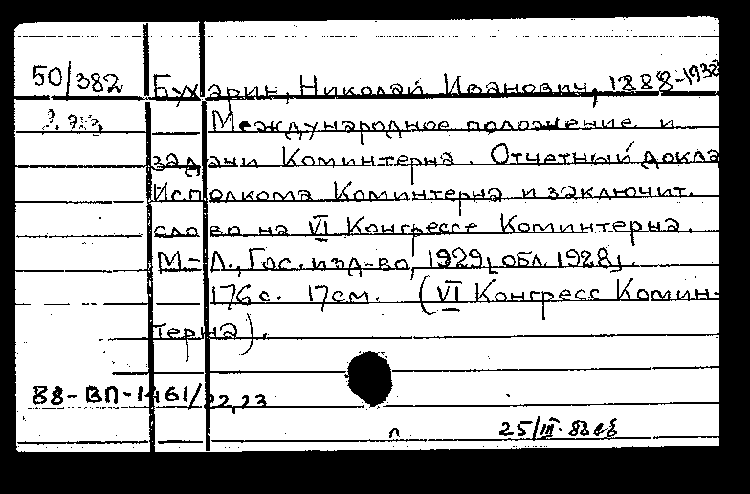 50/382 Бухарин, Николай Иванович, 1888-1938
Международное положение и
задачи Коминтерна. Отчетный докла
Исполкома Коминтерна и заключит.
слово на VI Конгрессе Коминтерна.
М-Л., Гос. изд-во, 1929, [обл. 1928].
176 с. 17 см. (VI Конгресс Комин-
терна).
88-ВП-1461/22,23
25/III-88